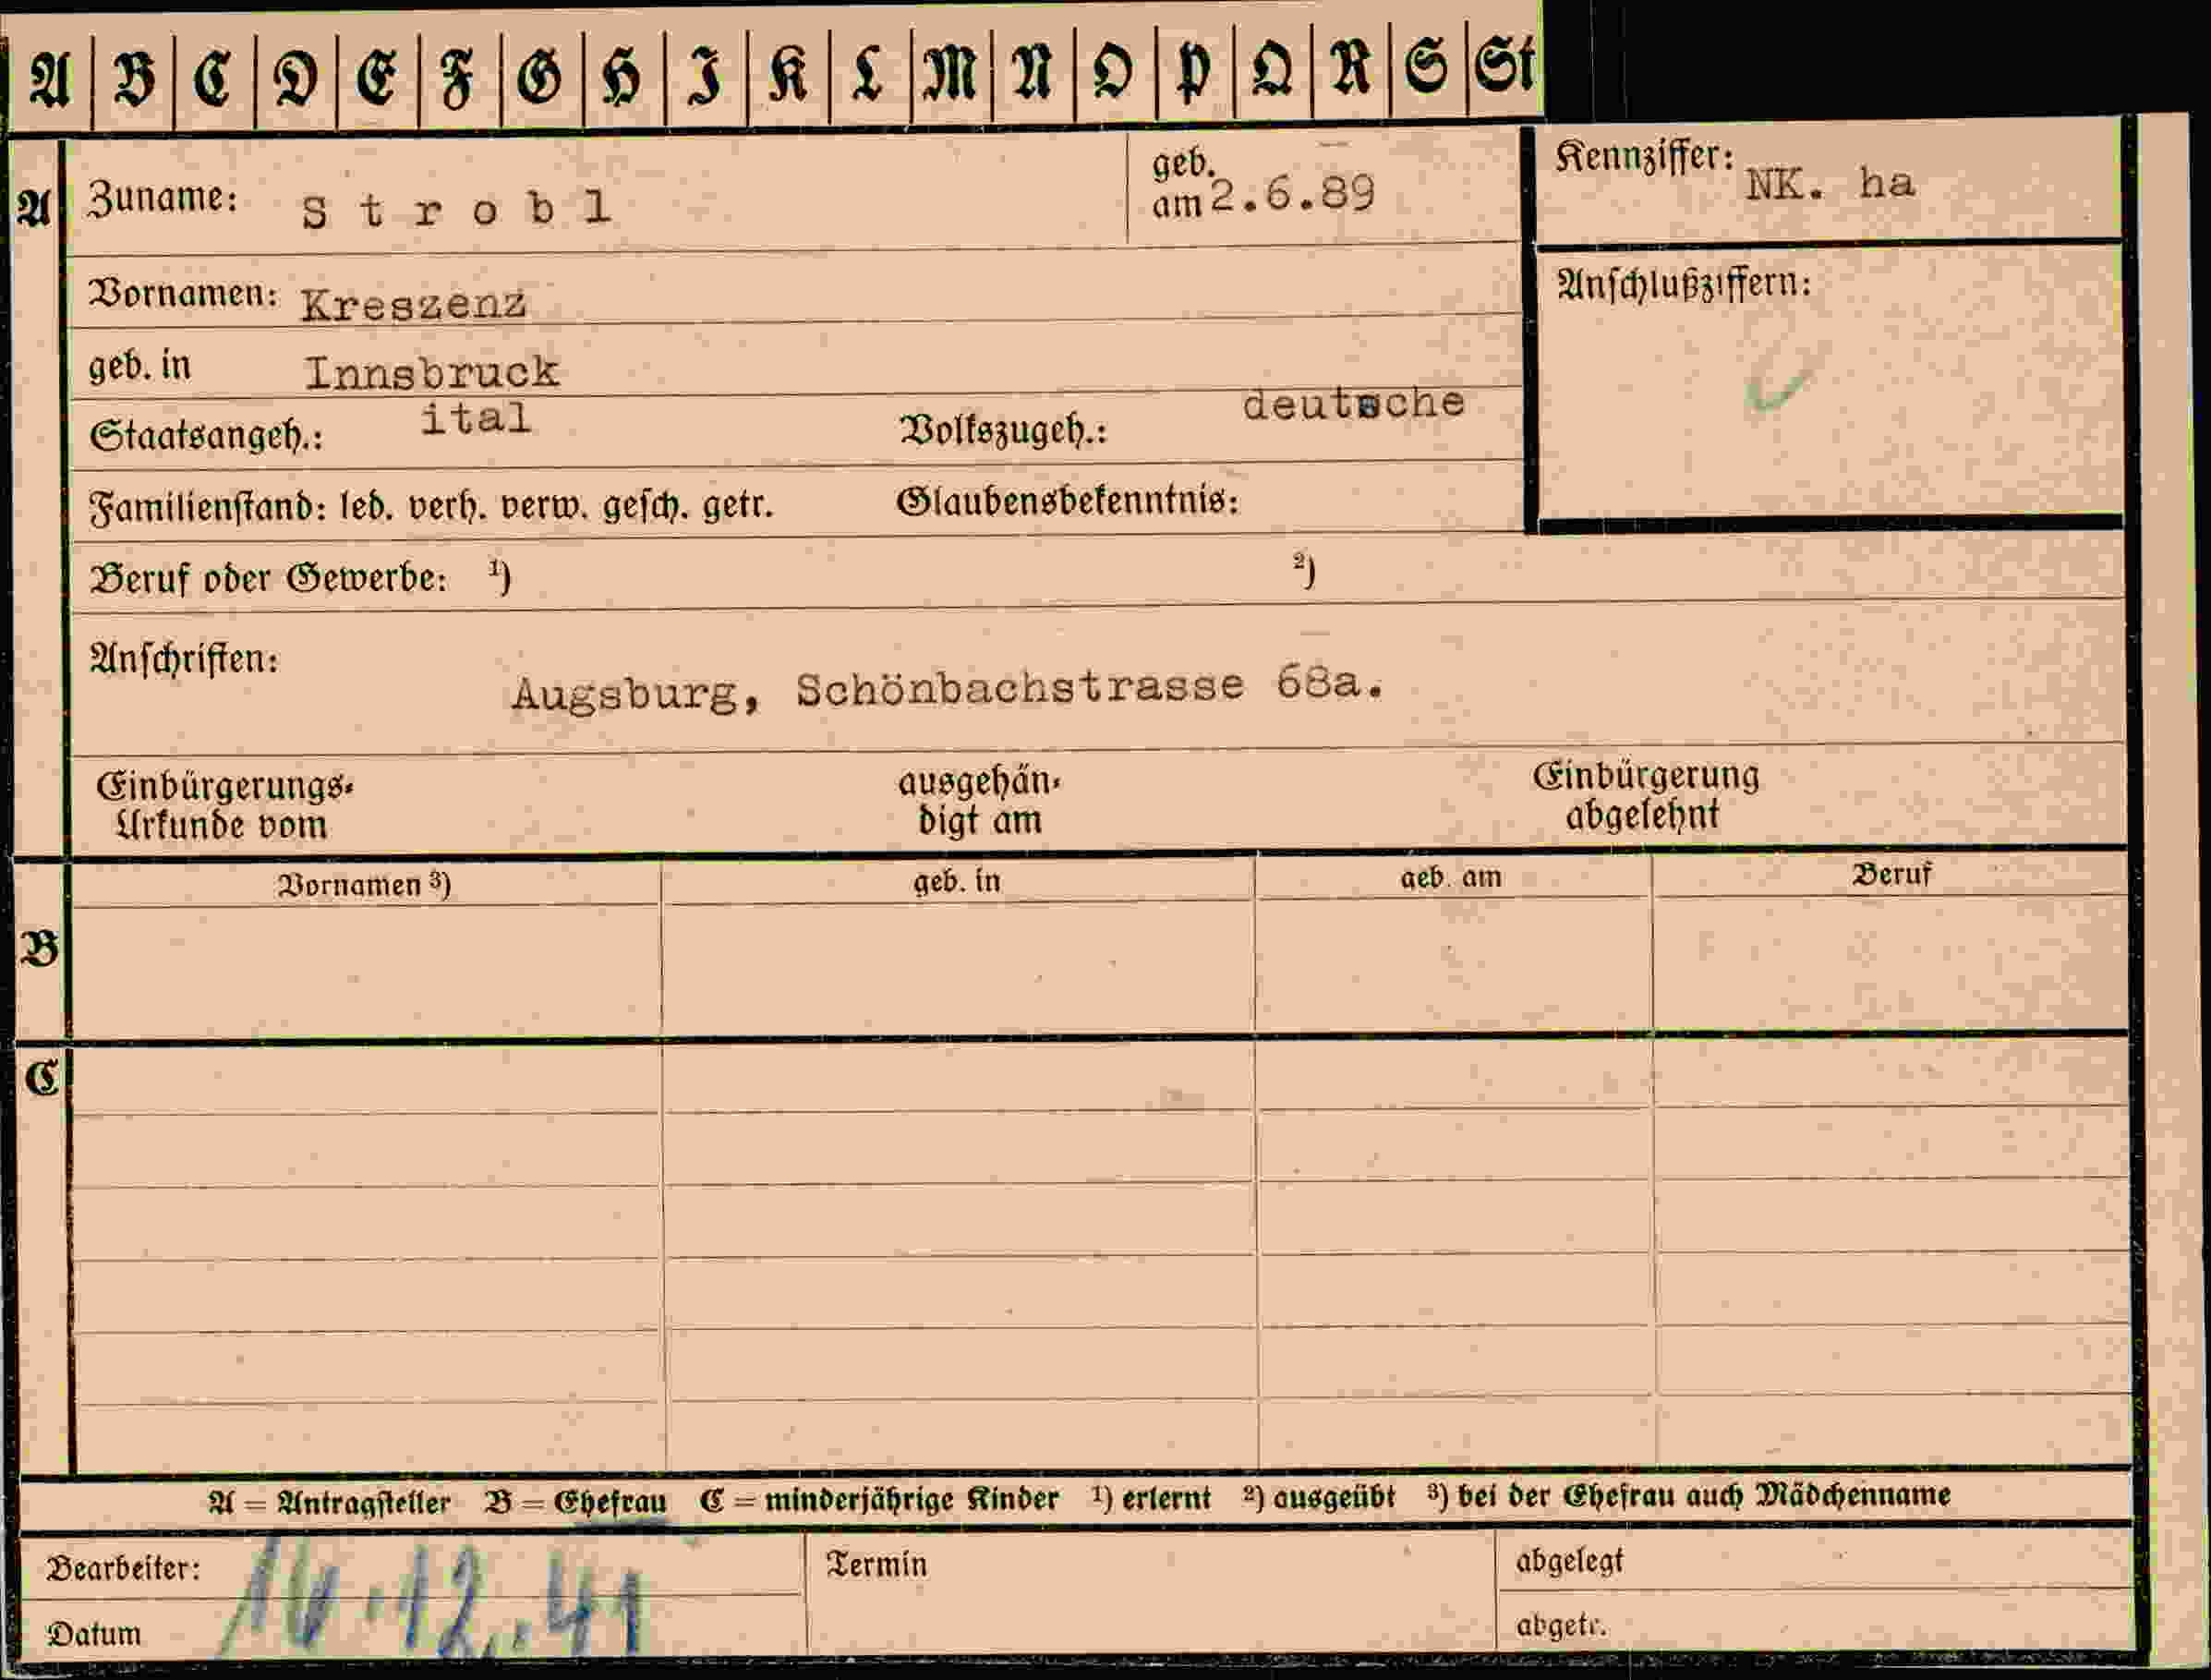 A B C D E F G H I K L M N O P Q R S St
A Zuname: Strobl geb. am 2.6.89 Kennziffer: NK. ha
Vornamen: Kreszenz Anschlußziffern:
geb. in Innsbruck
Staatsangeh.: ital Volkszugeh.: deutsche
Familienstand: led. verh. verw. gesch. getr. Glaubensbekenntnis:
Beruf oder Gewerbe: ¹) ²)
Anschriften:
Augsburg, Schönbachstrasse 68a.
Einbürgerungs- ausgehän- Einbürgerung
Urkunde vom digt am abgelehnt
Vornamen ³) geb. in geb. am Beruf
B
C
A = Antragsteller B = Ehefrau C = minderjährige Kinder ¹) erlernt ²) ausgeübt ³) bei der Ehefrau auch Mädchenname
Bearbeiter: Termin abgelegt
Datum 12.41 abgetr.